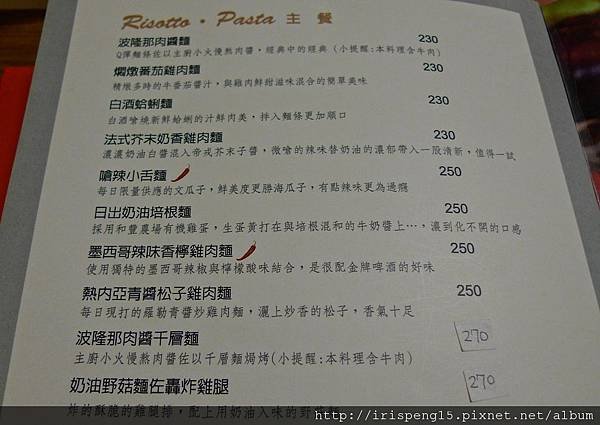 Risotto · Pasta 主 餐
波隆那肉醬麵 230
Q彈麵條佐以主廚小火慢熬肉醬，經典中的經典 (小提醒:本料理含牛肉)
燜燉蕃茄雞肉麵 230
精燉多時的牛番茄醬汁，與雞肉鮮甜滋味混合的簡單美味
白酒蛤蜊麵 230
白酒嗆燒新鮮蛤蜊的汁鮮肉美，拌入麵條更加順口
法式芥末奶香雞肉麵 230
濃濃奶油白醬混入帝戎芥末子醬，微嗆的辣味替奶油的濃郁帶入一股清新，值得一試
嗆辣小舌麵 250
每日限量供應的文瓜子，鮮美度更勝海瓜子，有點辣味更為過癮
日出奶油培根麵 250
採用和豐農場有機雞蛋，生蛋黃打在與培根混和的牛奶醬上…，濃到化不開的口感
墨西哥辣味香檸雞肉麵 250
使用獨特的墨西哥辣椒與檸檬酸味結合，是很配金牌啤酒的好味
熱內亞青醬松子雞肉麵 250
每日現打的羅勒青醬炒雞肉麵，灑上炒香的松子，香氣十足
波隆那肉醬千層麵 270
主廚小火慢熬肉醬佐以千層麵焗烤(小提醒:本料理含牛肉)
奶油野菇麵佐轟炸雞腿 270
炸的酥脆的雞腿排，配上用奶油入味的野菇麵
http://irispeng15.pixnet.net/album